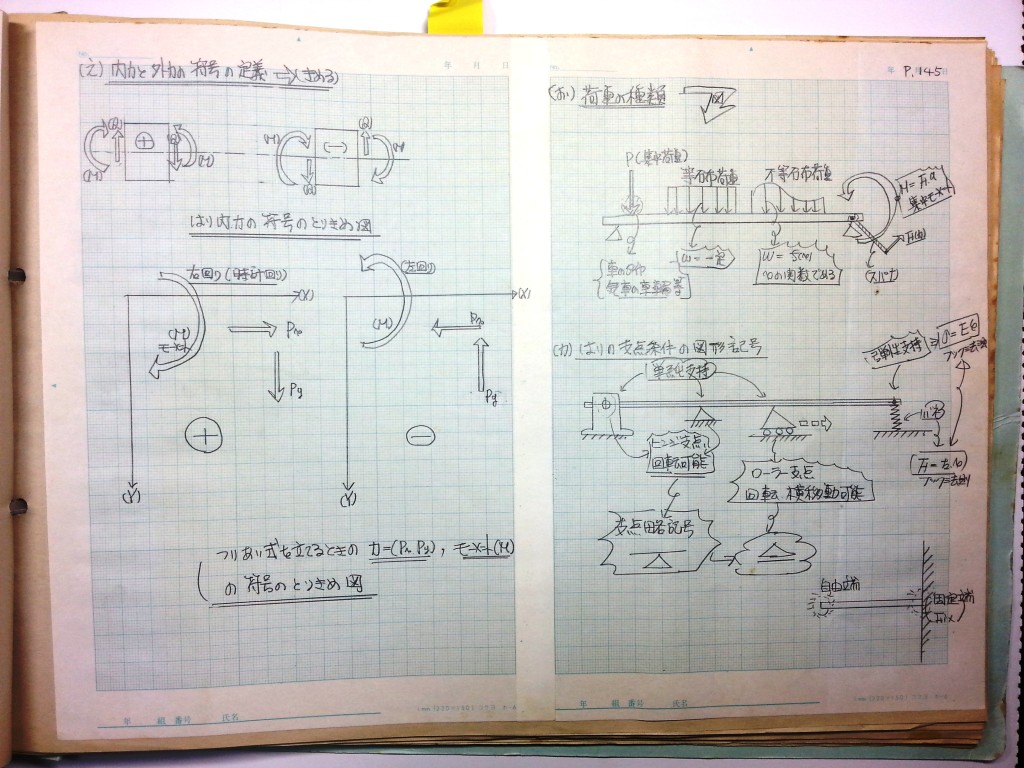 (え) 内力と外力の符号の定義 ⇒ (きめる)
(Q)
⊕
(M)
(M)
(Q)
(M)
(−)
(M)
(Q)
はり内力の符号のとりきめ図
右回り(時計回り)
(X)
(M)
モーメント
Px
Py
⊕
(Y)
(左回り)
(X)
(M)
Px
Py
⊖
(Y)
つりあい式を立てるときの 力=(Px, Py), モーメント(M)
の符号のとりきめ図
年 月 日
年 組 番号 氏名
P. 145
(お) 荷重の種類 図
P(集中荷重)
等分布荷重
不等分布荷重
集中モーメント
w=一定
w=f(x)
xの関数である
(スパナ)
(か) はりの支点条件の図形記号
単純支持
弾性支持
フックの法則
ヒンジ支点,
回転可能
ローラー支点
回転, 横移動可能
支点略記号
フックの法則
自由端
固定端
Fix
年 組 番号 氏名